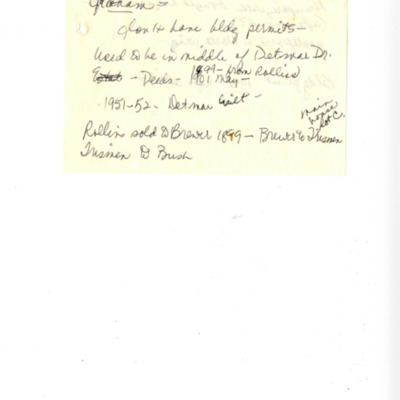 Graham -
don't have bldg permits -
Used to be in middle of Detmar Dr.
- Deeds - 1901 May - 1899 - from Rollins
1951-52 - Detmar built -
main house lot C.
Rollins sold to Brewer 1899 - Brewer to Trismen
Trismen to Bush